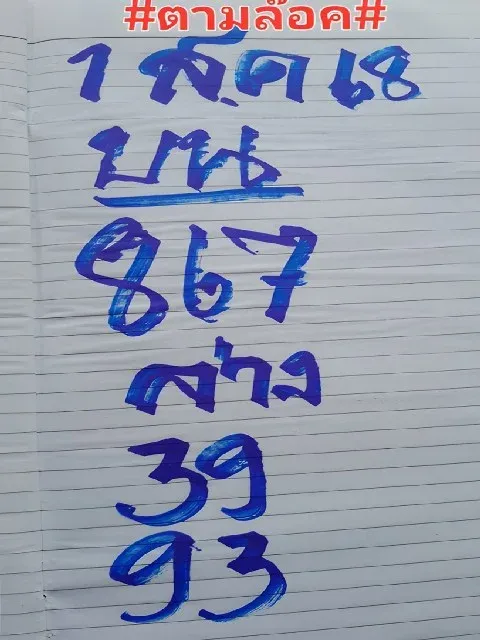 #ตามล๊อค#
1 ส.ค 68
บน
867
ล่าง
39
93